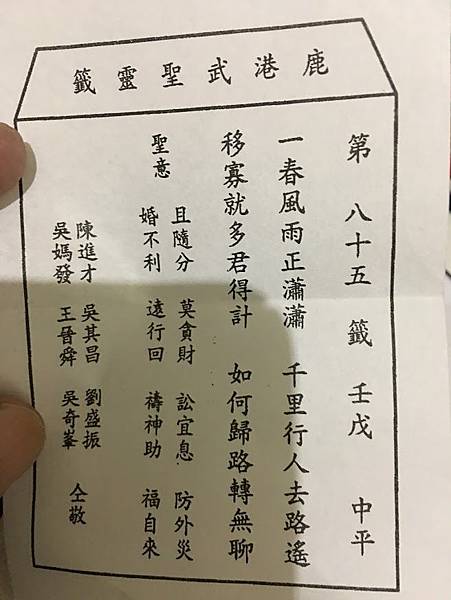 鹿港武聖靈籤
第八十五籤 壬戌 中平
一春風雨正瀟瀟 千里行人去路遙
移寡就多君得計 如何歸路轉無聊
聖意
且隨分 莫貪財 訟宜息 防外災
婚不利 遠行回 禱神助 福自來
陳進才 吳其昌 劉盛振
吳媽發 王晉舜 吳奇峯
仝敬